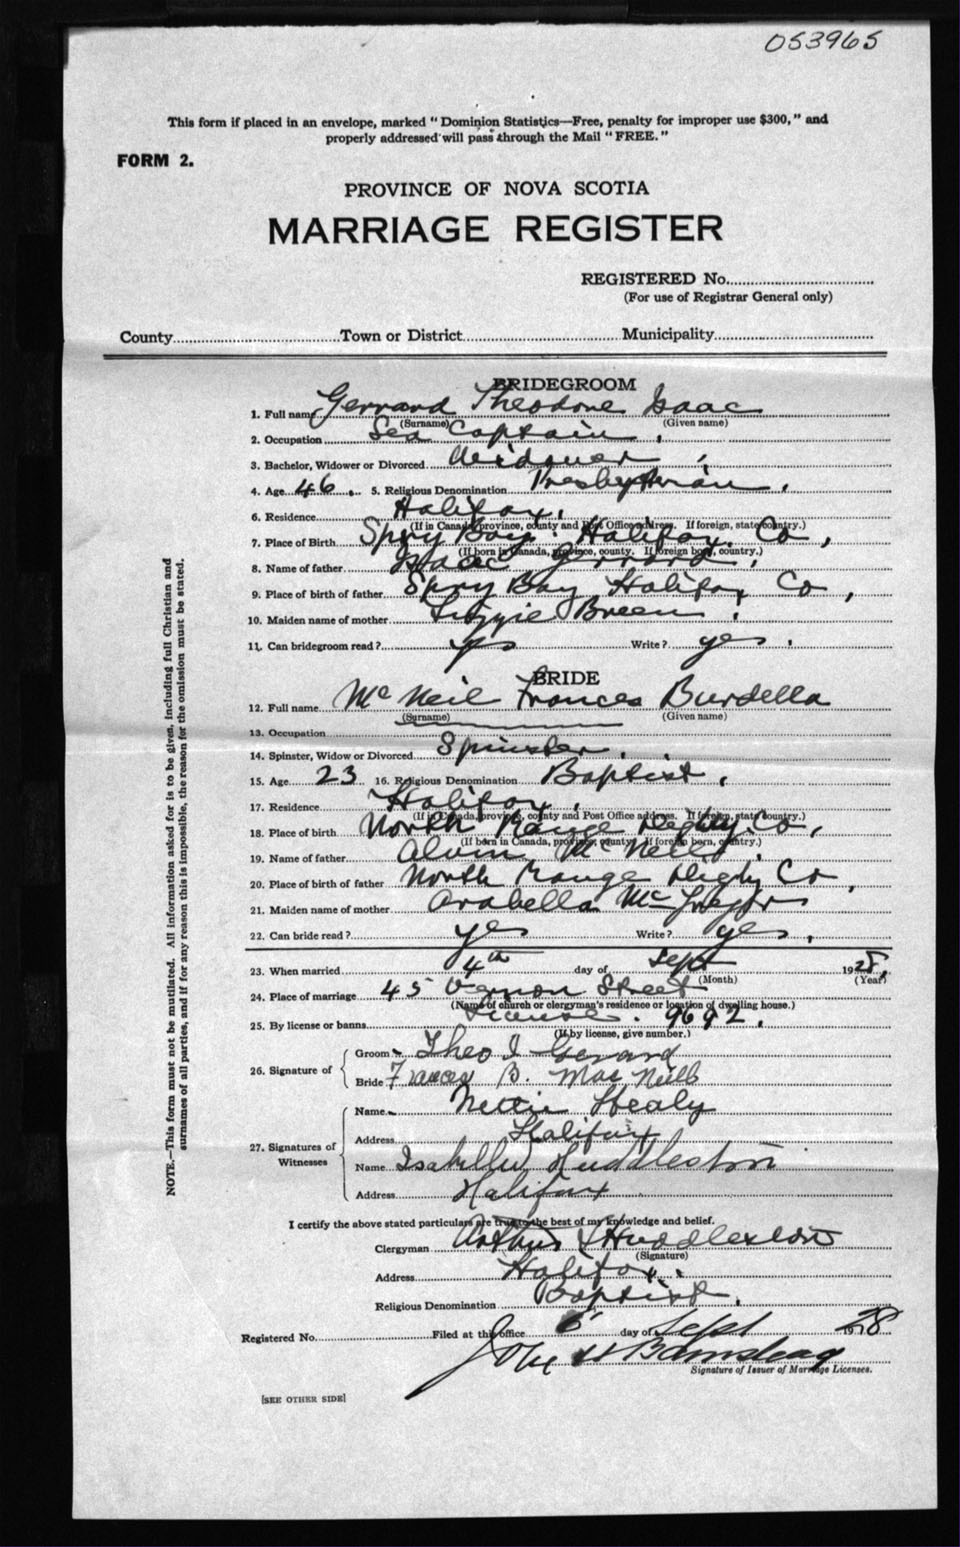 053965
This form if placed in an envelope, marked "Dominion Statistics—Free, penalty for improper use $300," and
properly addressed will pass through the Mail "FREE."
FORM 2.
PROVINCE OF NOVA SCOTIA
MARRIAGE REGISTER
REGISTERED No.
(For use of Registrar General only)
County Town or District Municipality
BRIDEGROOM
1. Full name Gerrard Theodore Isaac
(Surname) (Given name)
2. Occupation Sea Captain.
3. Bachelor, Widower or Divorced Widower
4. Age 46. 5. Religious Denomination Presbyterian.
6. Residence Halifax.
(If in Canada, province, county and Post Office address. If foreign, state country.)
7. Place of Birth Spry Bay Halifax Co,
(If born in Canada, province, county. If foreign born, country.)
8. Name of father Isaac Gerrard.
9. Place of birth of father Spry Bay Halifax Co,
10. Maiden name of mother Lizzie Breen.
11. Can bridegroom read? yes Write? yes.
BRIDE
12. Full name McNeil Frances Burdella
(Surname) (Given name)
13. Occupation
14. Spinster, Widow or Divorced Spinster.
15. Age 23 16. Religious Denomination Baptist,
17. Residence Halifax,
(If in Canada, province, county and Post Office address. If foreign, state country.)
18. Place of birth North Range Digby Co,
(If born in Canada, province, county. If foreign born, country.)
19. Name of father Alvin McNeil.
20. Place of birth of father North Range Digby Co,
21. Maiden name of mother Arabella McGregor
22. Can bride read? yes Write? yes,
23. When married 4th day of Sept 1928,
(Month) (Year)
24. Place of marriage 45 Vernon Street
(Name of church or clergyman's residence or location of dwelling house.)
25. By license or banns License. 9692.
(If by license, give number.)
26. Signature of
Groom Theo I Gerrard
Bride Frances B. MacNeill
27. Signatures of Witnesses
Name Nettie Healy
Address Halifax
Name Isabella Huddleston
Address Halifax
I certify the above stated particulars are true to the best of my knowledge and belief.
Clergyman Arthur Huddleston
(Signature)
Address Halifax.
Religious Denomination Baptist.
Registered No. Filed at this office 6 day of Sept 1928
John H
Signature of Issuer of Marriage Licenses.
[SEE OTHER SIDE]
NOTE.—This form must not be mutilated. All information asked for is to be given, including full Christian and
surnames of all parties, and if for any reason this is impossible, the reason for the omission must be stated.